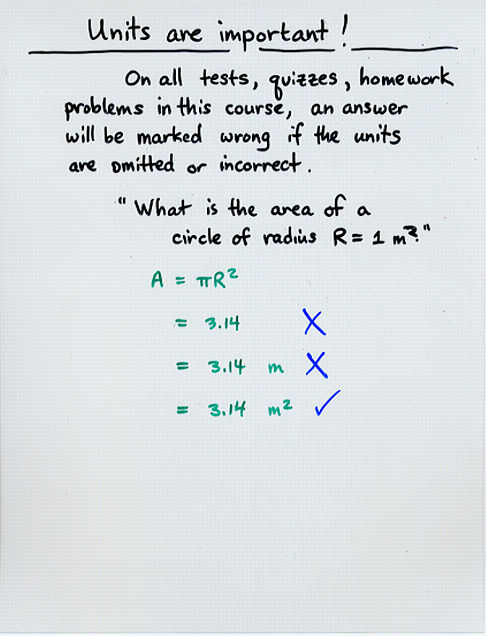 Units are important!
On all tests, quizzes, homework
problems in this course, an answer
will be marked wrong if the units
are omitted or incorrect.
"What is the area of a
circle of radius R = 1 m?"
A = πR²
= 3.14 X
= 3.14 m X
= 3.14 m² ✓